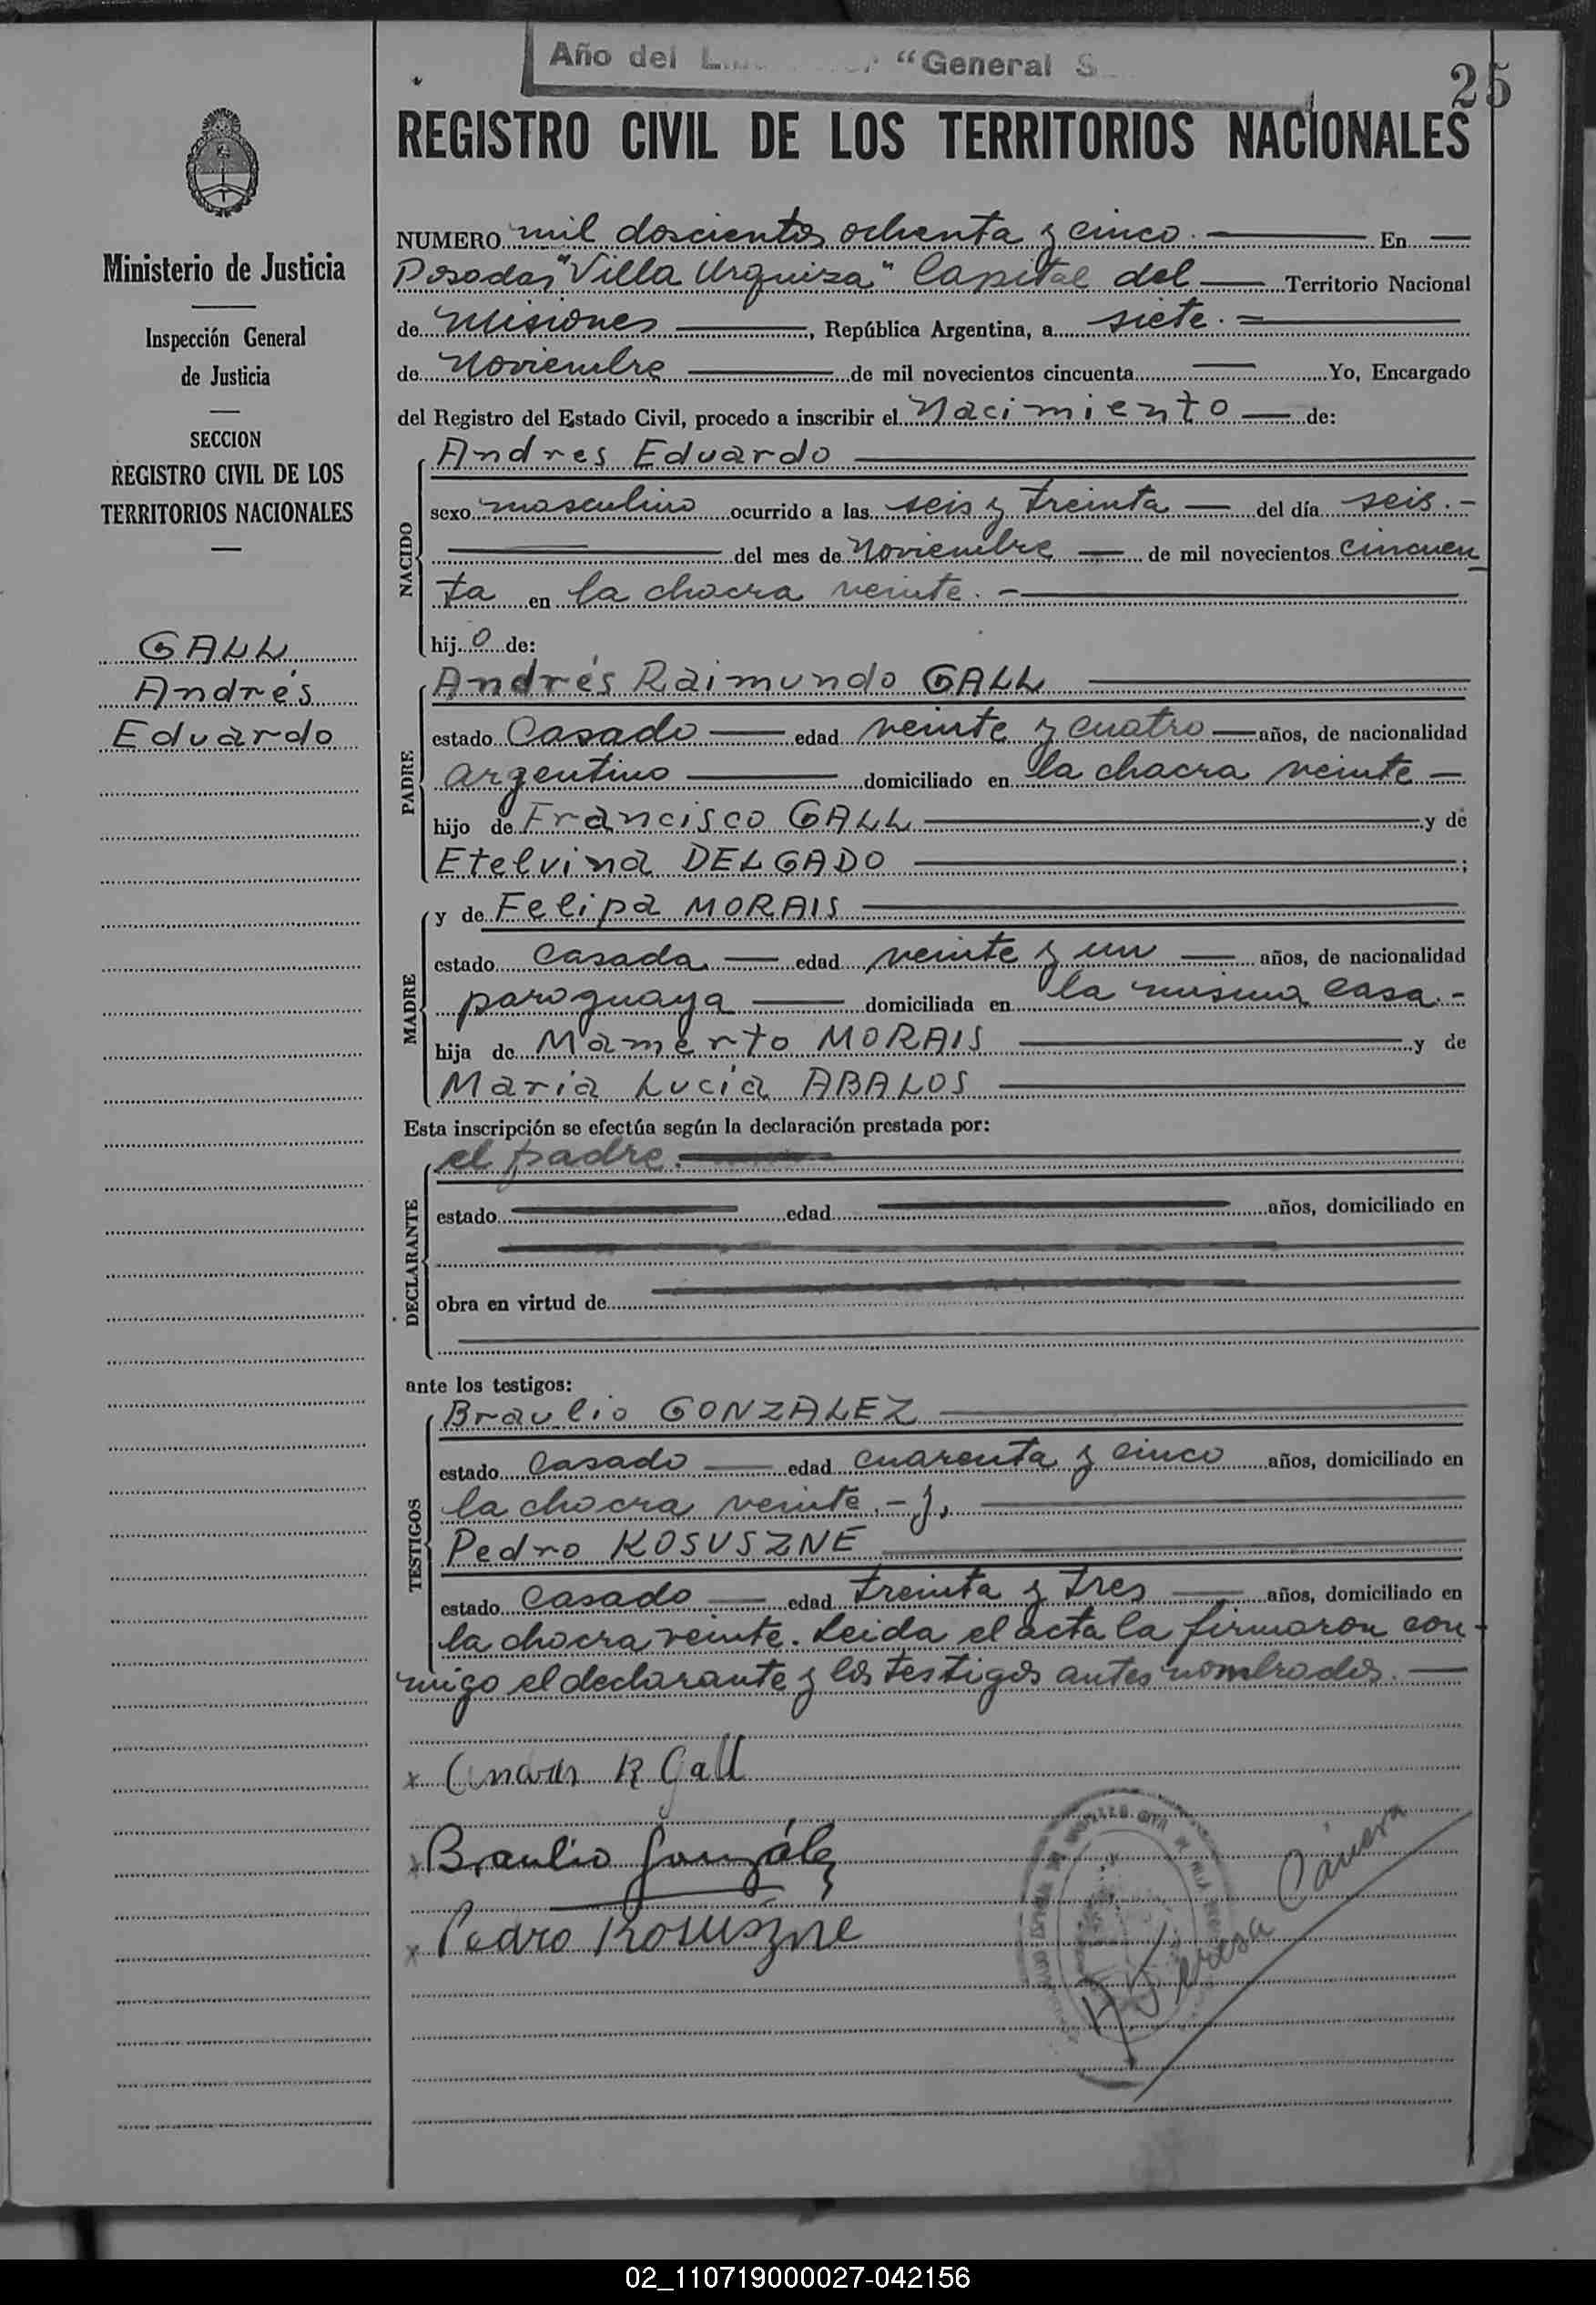 Año del "General S
25
REGISTRO CIVIL DE LOS TERRITORIOS NACIONALES
Ministerio de Justicia
Inspección General
de Justicia
SECCION
REGISTRO CIVIL DE LOS
TERRITORIOS NACIONALES
GALL
Andrés
Eduardo
NUMERO mil doscientos ochenta y cinco. En
Posadas "Villa Urquiza" Capital del Territorio Nacional
de Misiones, República Argentina, a siete.
de Noviembre de mil novecientos cincuenta Yo, Encargado
del Registro del Estado Civil, procedo a inscribir el Nacimiento de:
NACIDO
Andres Eduardo
sexo masculino ocurrido a las seis y treinta del día seis.-
del mes de Noviembre de mil novecientos cincuen
ta en la chacra veinte.-
hijo de:
PADRE
Andrés Raimundo GALL
estado Casado edad veinte y cuatro años, de nacionalidad
argentino domiciliado en la chacra veinte
hijo de Francisco GALL y de
Etelvina DELGADO ;
MADRE
y de Felipa MORAIS
estado Casada edad veinte y un años, de nacionalidad
paraguaya domiciliada en la misma casa.-
hija de Mamerto MORAIS y de
Maria Lucía ABALOS
Esta inscripción se efectúa según la declaración prestada por:
DECLARANTE
el padre.
estado edad años, domiciliado en
obra en virtud de
ante los testigos:
TESTIGOS
Braulio GONZALEZ
estado Casado edad cuarenta y cinco años, domiciliado en
la chacra veinte.- y,
Pedro KOSUSZNE
estado Casado edad treinta y tres años, domiciliado en
la chacra veinte. Leida el acta la firmaron con-
migo el declarante y los testigos antes nombrados.
x R Gall
x Braulio González
x Pedro Kosuszne
Teresa
02_110719000027-042156